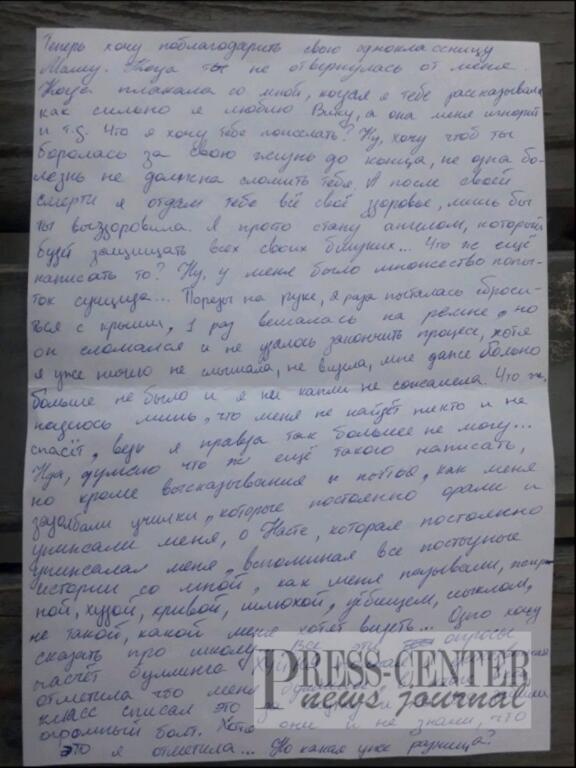 Теперь хочу поблагодарить свою одноклассницу
Машу. Тогда ты не отвернулась от меня.
Тогда плакала со мной, когда я тебе рассказывала
как сильно я люблю Вику, а она меня игнорит
и т.д. Что я хочу тебе пожелать? Ну, хочу чтоб ты
боролась за свою жизнь до конца, не одна бо-
лезнь не должна сломить тебя. А после своей
смерти я отдам тебе всё своё здоровье, лишь бы
ты выздоровила. Я просто стану ангелом, который
будет защищать всех своих близких... Что же ещё
написать то? Ну, у меня было множество попы-
ток суицида... Порезы на руке, я раза пыталась сброси-
ться с крыши, 1 раз вешалась на ремне, но
он сломался и не удалось закончить процесс, хотя
я уже ничего не слышала, не видела, мне даже больно
больше не было и я ни капли не сожалела. Что ж,
надеюсь лишь, что меня не найдёт никто и не
спасёт, ведь я правда так больше не могу...
Нда, думаю что же ещё такого написать,
но кроме высказывания о как меня
задолбали училки, которые постоянно орали и
унижали меня, о Насте, которая постоянно
унижала меня, вспоминая все постыдные
истории со мной, как меня называли
ной, худой, кривой, шлюхой, убищем,
не такой, какой меня хотят видеть... Одно хочу
сказать про школу. Все эти опросы
насчёт буллинга
отметила что меня
класс списал это за
огромный болт. Хотя они и не знали, что
это я отметила... Но какая уже разница?
PRESS-CENTER
news journal